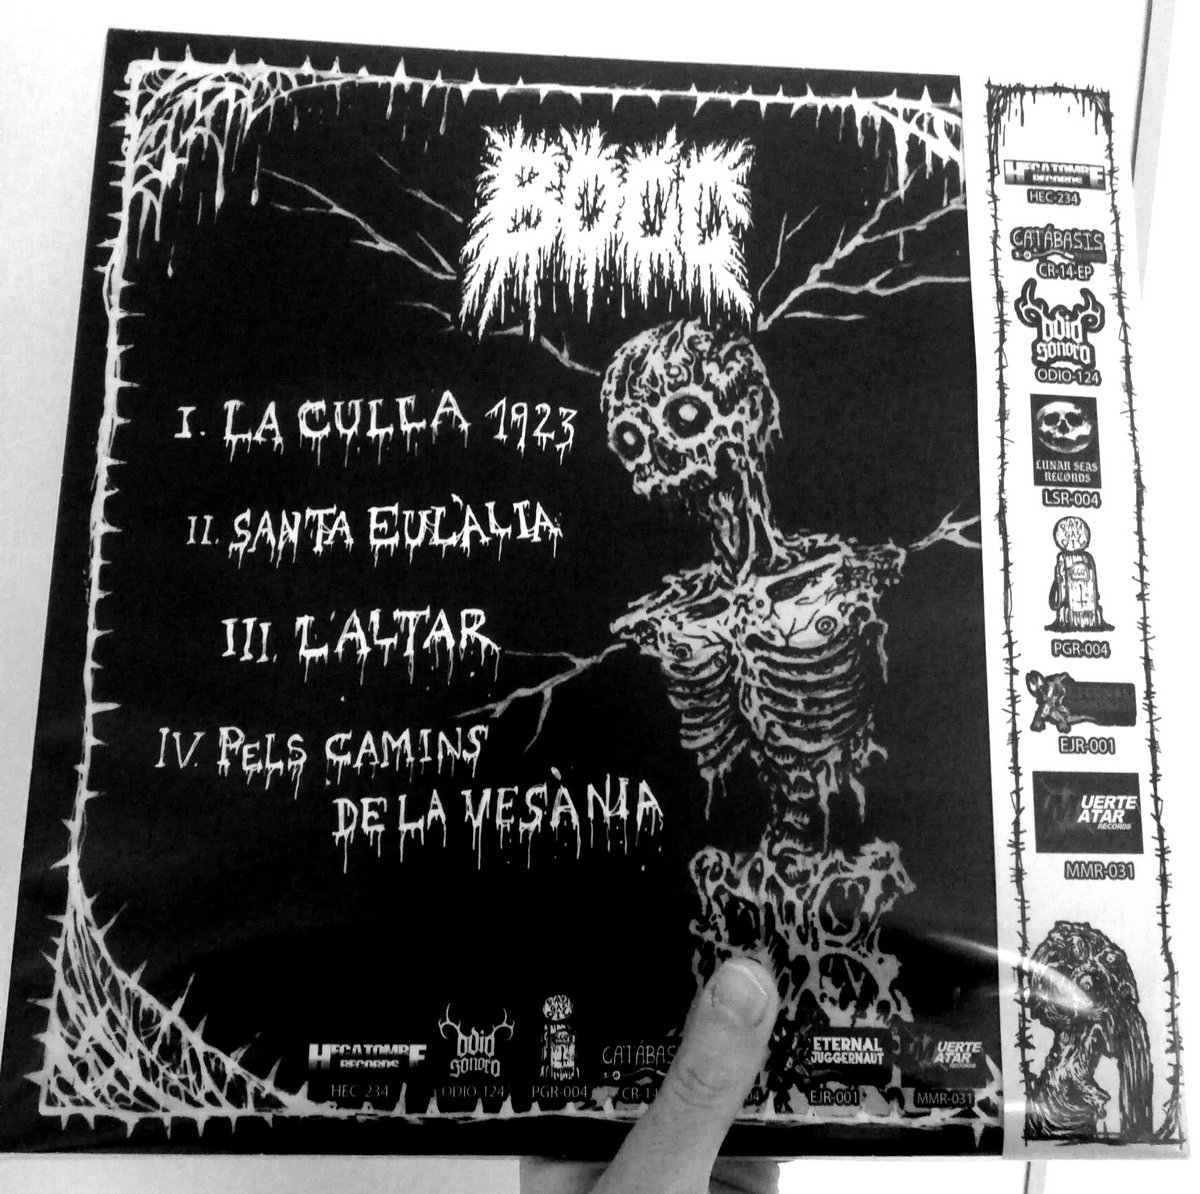 I. LA CULLA 1923
II. SANTA EULÀLIA
III. L'ALTAR
IV. PELS CAMINS
DE LA VESÀNIA
HECATOMBE
RECORDS
HEC-234
ODIO
SONORO
ODIO-124
PGR-004
ETERNAL
JUGGERNAUT
EJR-001
MUERTE
MATAR
RECORDS
MMR-031
HECATOMBE
RECORDS
HEC-234
CATÁBASIS
CR-14-EP
ODIO
SONORO
ODIO-124
LUNAR SEAS
RECORDS
LSR-004
PGR-004
EJR-001
MUERTE
MATAR
RECORDS
MMR-031